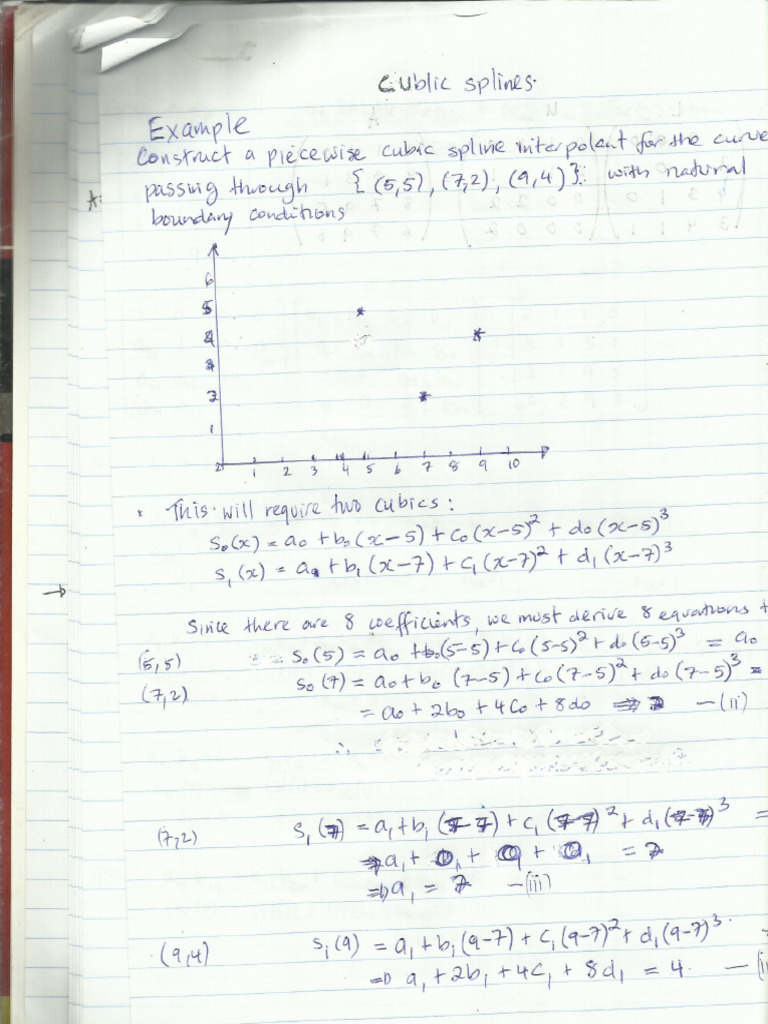 Cublic splines.
Example
Construct a piecewise cubic spline interpolant for the curve
passing through {(5,5), (7,2), (9,4)} with natural
A:
boundary conditions
6
5
4
2
1
1 2 3 4 5 6 7 8 9 10
* This will require two cubics:
s₀(x) = a₀ + b₀(x-5) + c₀(x-5)² + d₀(x-5)³
s₁(x) = a₁ + b₁(x-7) + c₁(x-7)² + d₁(x-7)³
Since there are 8 coefficients, we must derive 8 equations
(5,5) = s₀(5) = a₀ + b₀(5-5) + c₀(5-5)² + d₀(5-5)³ = a₀
(7,2) s₀(7) = a₀ + b₀(7-5) + c₀(7-5)² + d₀(7-5)³ =
= a₀ + 2b₀ + 4c₀ + 8d₀ —(ii)
∴
(7,2) s₁(7) = a₁ + b₁(7-7) + c₁(7-7)² + d₁(7-7)³ =
⇒ a₁ + 0 + 0 + 0 =
⇒ a₁ = —(iii)
(9,4) s₁(9) = a₁ + b₁(9-7) + c₁(9-7)² + d₁(9-7)³ =
⇒ a₁ + 2b₁ + 4c₁ + 8d₁ = 4 —